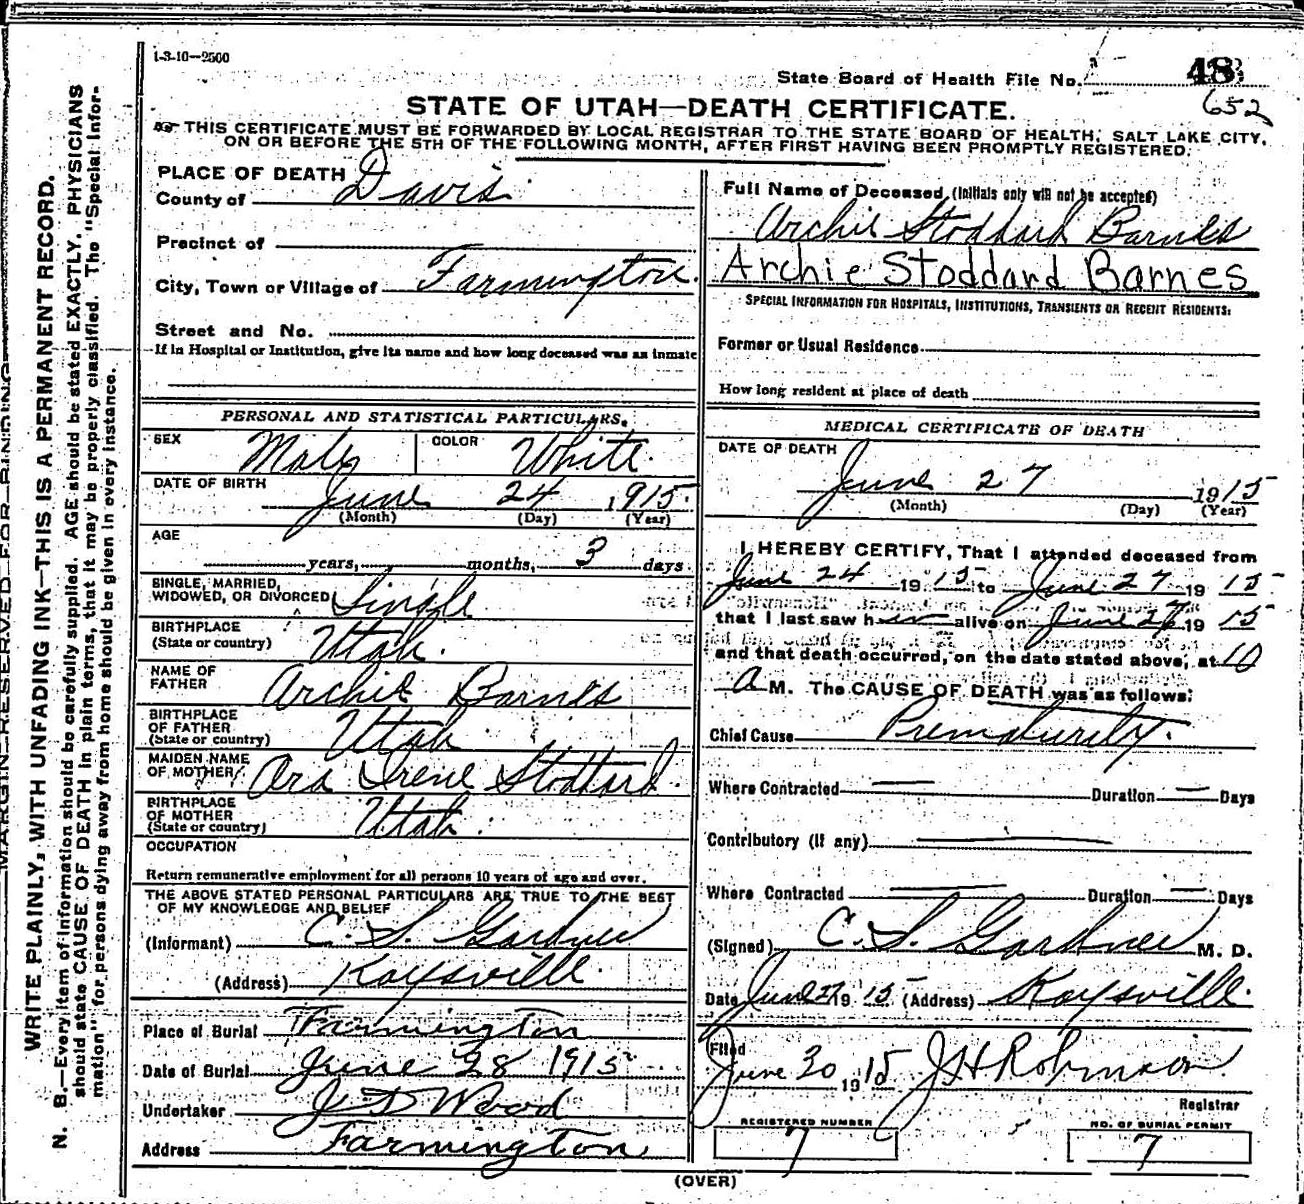 1-3-10—2500
State Board of Health File No. 48
652
STATE OF UTAH—DEATH CERTIFICATE.
THIS CERTIFICATE MUST BE FORWARDED BY LOCAL REGISTRAR TO THE STATE BOARD OF HEALTH, SALT LAKE CITY,
ON OR BEFORE THE 5TH OF THE FOLLOWING MONTH, AFTER FIRST HAVING BEEN PROMPTLY REGISTERED.
MARGIN RESERVED FOR BINDING
WRITE PLAINLY, WITH UNFADING INK—THIS IS A PERMANENT RECORD.
N. B.—Every item of information should be carefully supplied. AGE should be stated EXACTLY. PHYSICIANS
should state CAUSE OF DEATH in plain terms, that it may be properly classified. The "Special Infor-
mation" for persons dying away from home should be given in every instance.
PLACE OF DEATH
County of Davis
Precinct of
City, Town or Village of Farmington
Street and No.
If in Hospital or Institution, give its name and how long deceased was an inmate
PERSONAL AND STATISTICAL PARTICULARS.
SEX Male COLOR White
DATE OF BIRTH June 24 1915
(Month) (Day) (Year)
AGE
years, months, 3 days
SINGLE, MARRIED,
WIDOWED, OR DIVORCED Single
BIRTHPLACE
(State or country) Utah.
NAME OF
FATHER Archie Barnes
BIRTHPLACE
OF FATHER
(State or country) Utah
MAIDEN NAME
OF MOTHER Ara Irene Stoddard
BIRTHPLACE
OF MOTHER
(State or country) Utah
OCCUPATION
Return remunerative employment for all persons 10 years of age and over.
THE ABOVE STATED PERSONAL PARTICULARS ARE TRUE TO THE BEST
OF MY KNOWLEDGE AND BELIEF
(Informant) C. S. Gardner
(Address) Kaysville
Place of Burial Farmington
Date of Burial June 28 1915
Undertaker J D Wood
Address Farmington
Full Name of Deceased (Initials only will not be accepted)
Archie Stoddard Barnes
Archie Stoddard Barnes
SPECIAL INFORMATION FOR HOSPITALS, INSTITUTIONS, TRANSIENTS OR RECENT RESIDENTS:
Former or Usual Residence
How long resident at place of death
MEDICAL CERTIFICATE OF DEATH
DATE OF DEATH
June 27 1915
(Month) (Day) (Year)
I HEREBY CERTIFY, That I attended deceased from
June 24 1915 to June 27 1915
that I last saw him alive on June 27 1915
and that death occurred, on the date stated above, at 10
A M. The CAUSE OF DEATH was as follows:
Chief Cause Prematurity.
Where Contracted — Duration — Days
Contributory (If any) —
Where Contracted — Duration — Days
(Signed) C. S. Gardner M. D.
Date June 27 1915 (Address) Kaysville.
Filed
June 30 1915 J H Robinson
Registrar
REGISTERED NUMBER
7
NO. OF BURIAL PERMIT
7
(OVER)